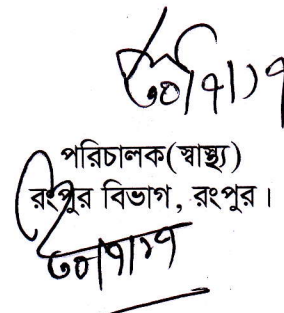 ৩০/৭/১৭
পরিচালক(স্বাস্থ্য)
রংপুর বিভাগ, রংপুর।
৩০/৭/১৭